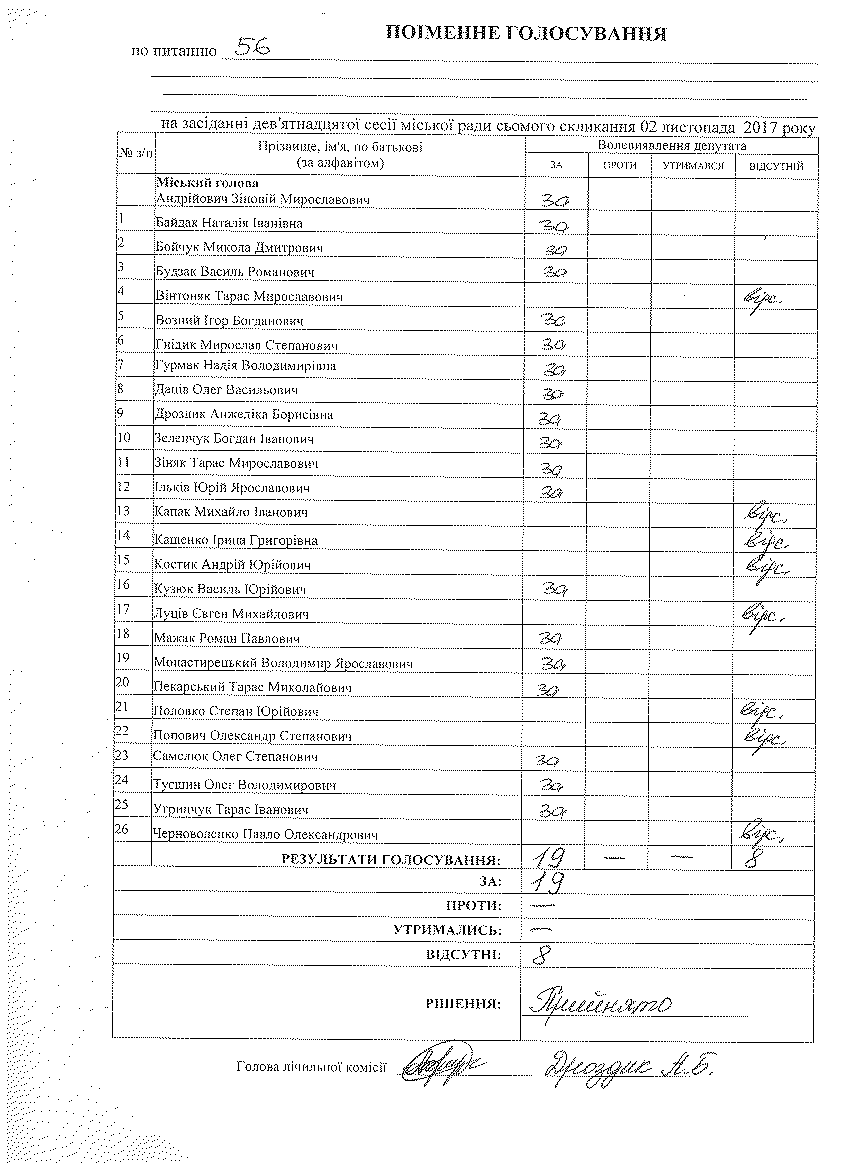 ПОІМЕННЕ ГОЛОСУВАННЯ
по питанню 56
на засіданні дев'ятнадцятої сесії міської ради сьомого скликання 02 листопада 2017 року
№ з/п Прізвище, ім'я, по батькові (за алфавітом) Волевиявлення депутата
ЗА ПРОТИ УТРИМАВСЯ ВІДСУТНІЙ
Міський голова
Андрійович Зіновій Мирославович за
1 Байдак Наталія Іванівна за
2 Бойчук Микола Дмитрович за
3 Будзак Василь Романович за
4 Вінтоняк Тарас Мирославович відс.
5 Возний Ігор Богданович за
6 Гнідик Мирослав Степанович за
7 Гурмак Надія Володимирівна за
8 Даців Олег Васильович за
9 Дроздик Анжеліка Борисівна за
10 Зеленчук Богдан Іванович за
11 Зіняк Тарас Мирославович за
12 Ільків Юрій Ярославович за
13 Капак Михайло Іванович відс.
14 Кащенко Ірина Григорівна відс.
15 Костик Андрій Юрійович відс.
16 Кузюк Василь Юрійович за
17 Луців Євген Михайлович відс.
18 Мажак Роман Павлович за
19 Монастирецький Володимир Ярославович за
20 Пекарський Тарас Миколайович за
21 Половко Степан Юрійович відс.
22 Попович Олександр Степанович відс.
23 Самелюк Олег Степанович за
24 Тусшин Олег Володимирович за
25 Угринчук Тарас Іванович за
26 Черноволенко Павло Олександрович відс.
РЕЗУЛЬТАТИ ГОЛОСУВАННЯ: 19 — — 8
ЗА: 19
ПРОТИ: —
УТРИМАЛИСЬ: —
ВІДСУТНІ: 8
РІШЕННЯ: Прийнято
Голова лічильної комісії Дроздик А.Б.